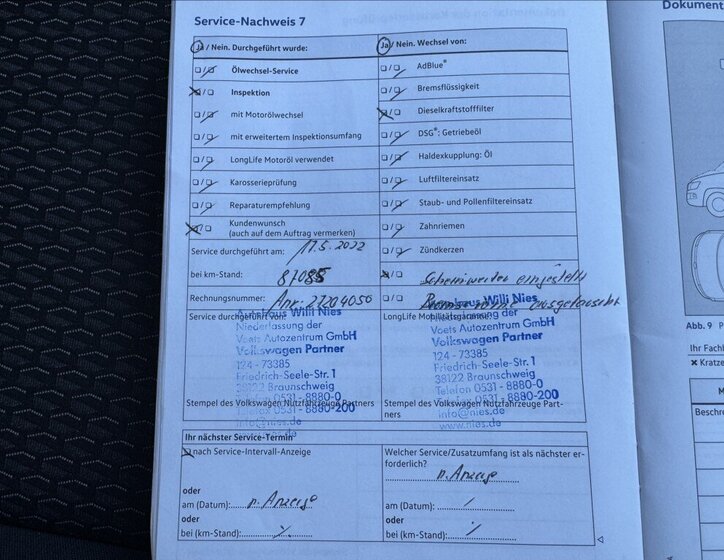 Dokument
Service-Nachweis 7
Ja / Nein. Durchgeführt wurde:
Ölwechsel-Service
Inspektion
mit Motorölwechsel
mit erweitertem Inspektionsumfang
LongLife Motoröl verwendet
Karosserieprüfung
Reparaturempfehlung
Kundenwunsch
(auch auf dem Auftrag vermerken)
Service durchgeführt am: 17.5.2022
bei km-Stand: 87085
Rechnungsnummer: Anr. 21204050
Service durchgeführt von:
Autohaus Willi Nies
Niederlassung der
Voets Autozentrum GmbH
Volkswagen Partner
124 - 73385
Friedrich-Seele-Str. 1
38122 Braunschweig
0531 - 8880-0
Stempel des Volkswagen Nutzfahrzeuge Partners
Telefax 0531 - 8880-200
info@nies.de
Ja / Nein. Wechsel von:
AdBlue®
Bremsflüssigkeit
Dieselkraftstofffilter
DSG®: Getriebeöl
Haldexkupplung: Öl
Luftfiltereinsatz
Staub- und Pollenfiltereinsatz
Zahnriemen
Zündkerzen
Scheinwerfer eingestellt
ausgetauscht
LongLife Mobilitätsgarantie
Autohaus Willi Nies
Niederlassung der
Voets Autozentrum GmbH
Volkswagen Partner
124 - 73385
Friedrich-Seele-Str. 1
38122 Braunschweig
Telefon 0531 - 8880-0
Stempel des Volkswagen Nutzfahrzeuge Part-
ners
Telefax 0531 - 8880-200
info@nies.de
www.nies.de
Ihr nächster Service-Termin
nach Service-Intervall-Anzeige
oder
am (Datum): n. Anzeige
oder
bei (km-Stand):
Welcher Service/Zusatzumfang ist als nächster er-
forderlich?
n. Anzeige
am (Datum):
oder
bei (km-Stand):
Abb. 9 P
Ihr Fachb
Kratze
M
Beschre